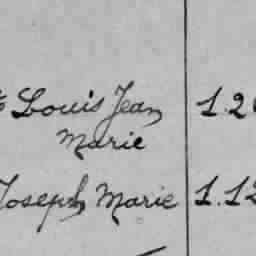 Louis Jean 1.2
Marie
Joseph Marie 1.12